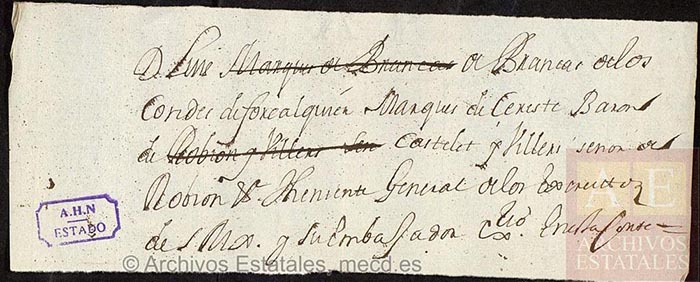 D. Luis Marques de Brancas de Brancas de los
Condes de forcalquier Marques de Cereste Baron
de Robion y Villers Sen Castelet y Villers señor de
Robion &c. Theniente General de los Exercittos
de S. Mx. y su Embajador en esta Corte
A.H.N
ESTADO
A E
ARCHIVOS
ESTATALES
© Archivos Estatales, mecd.es